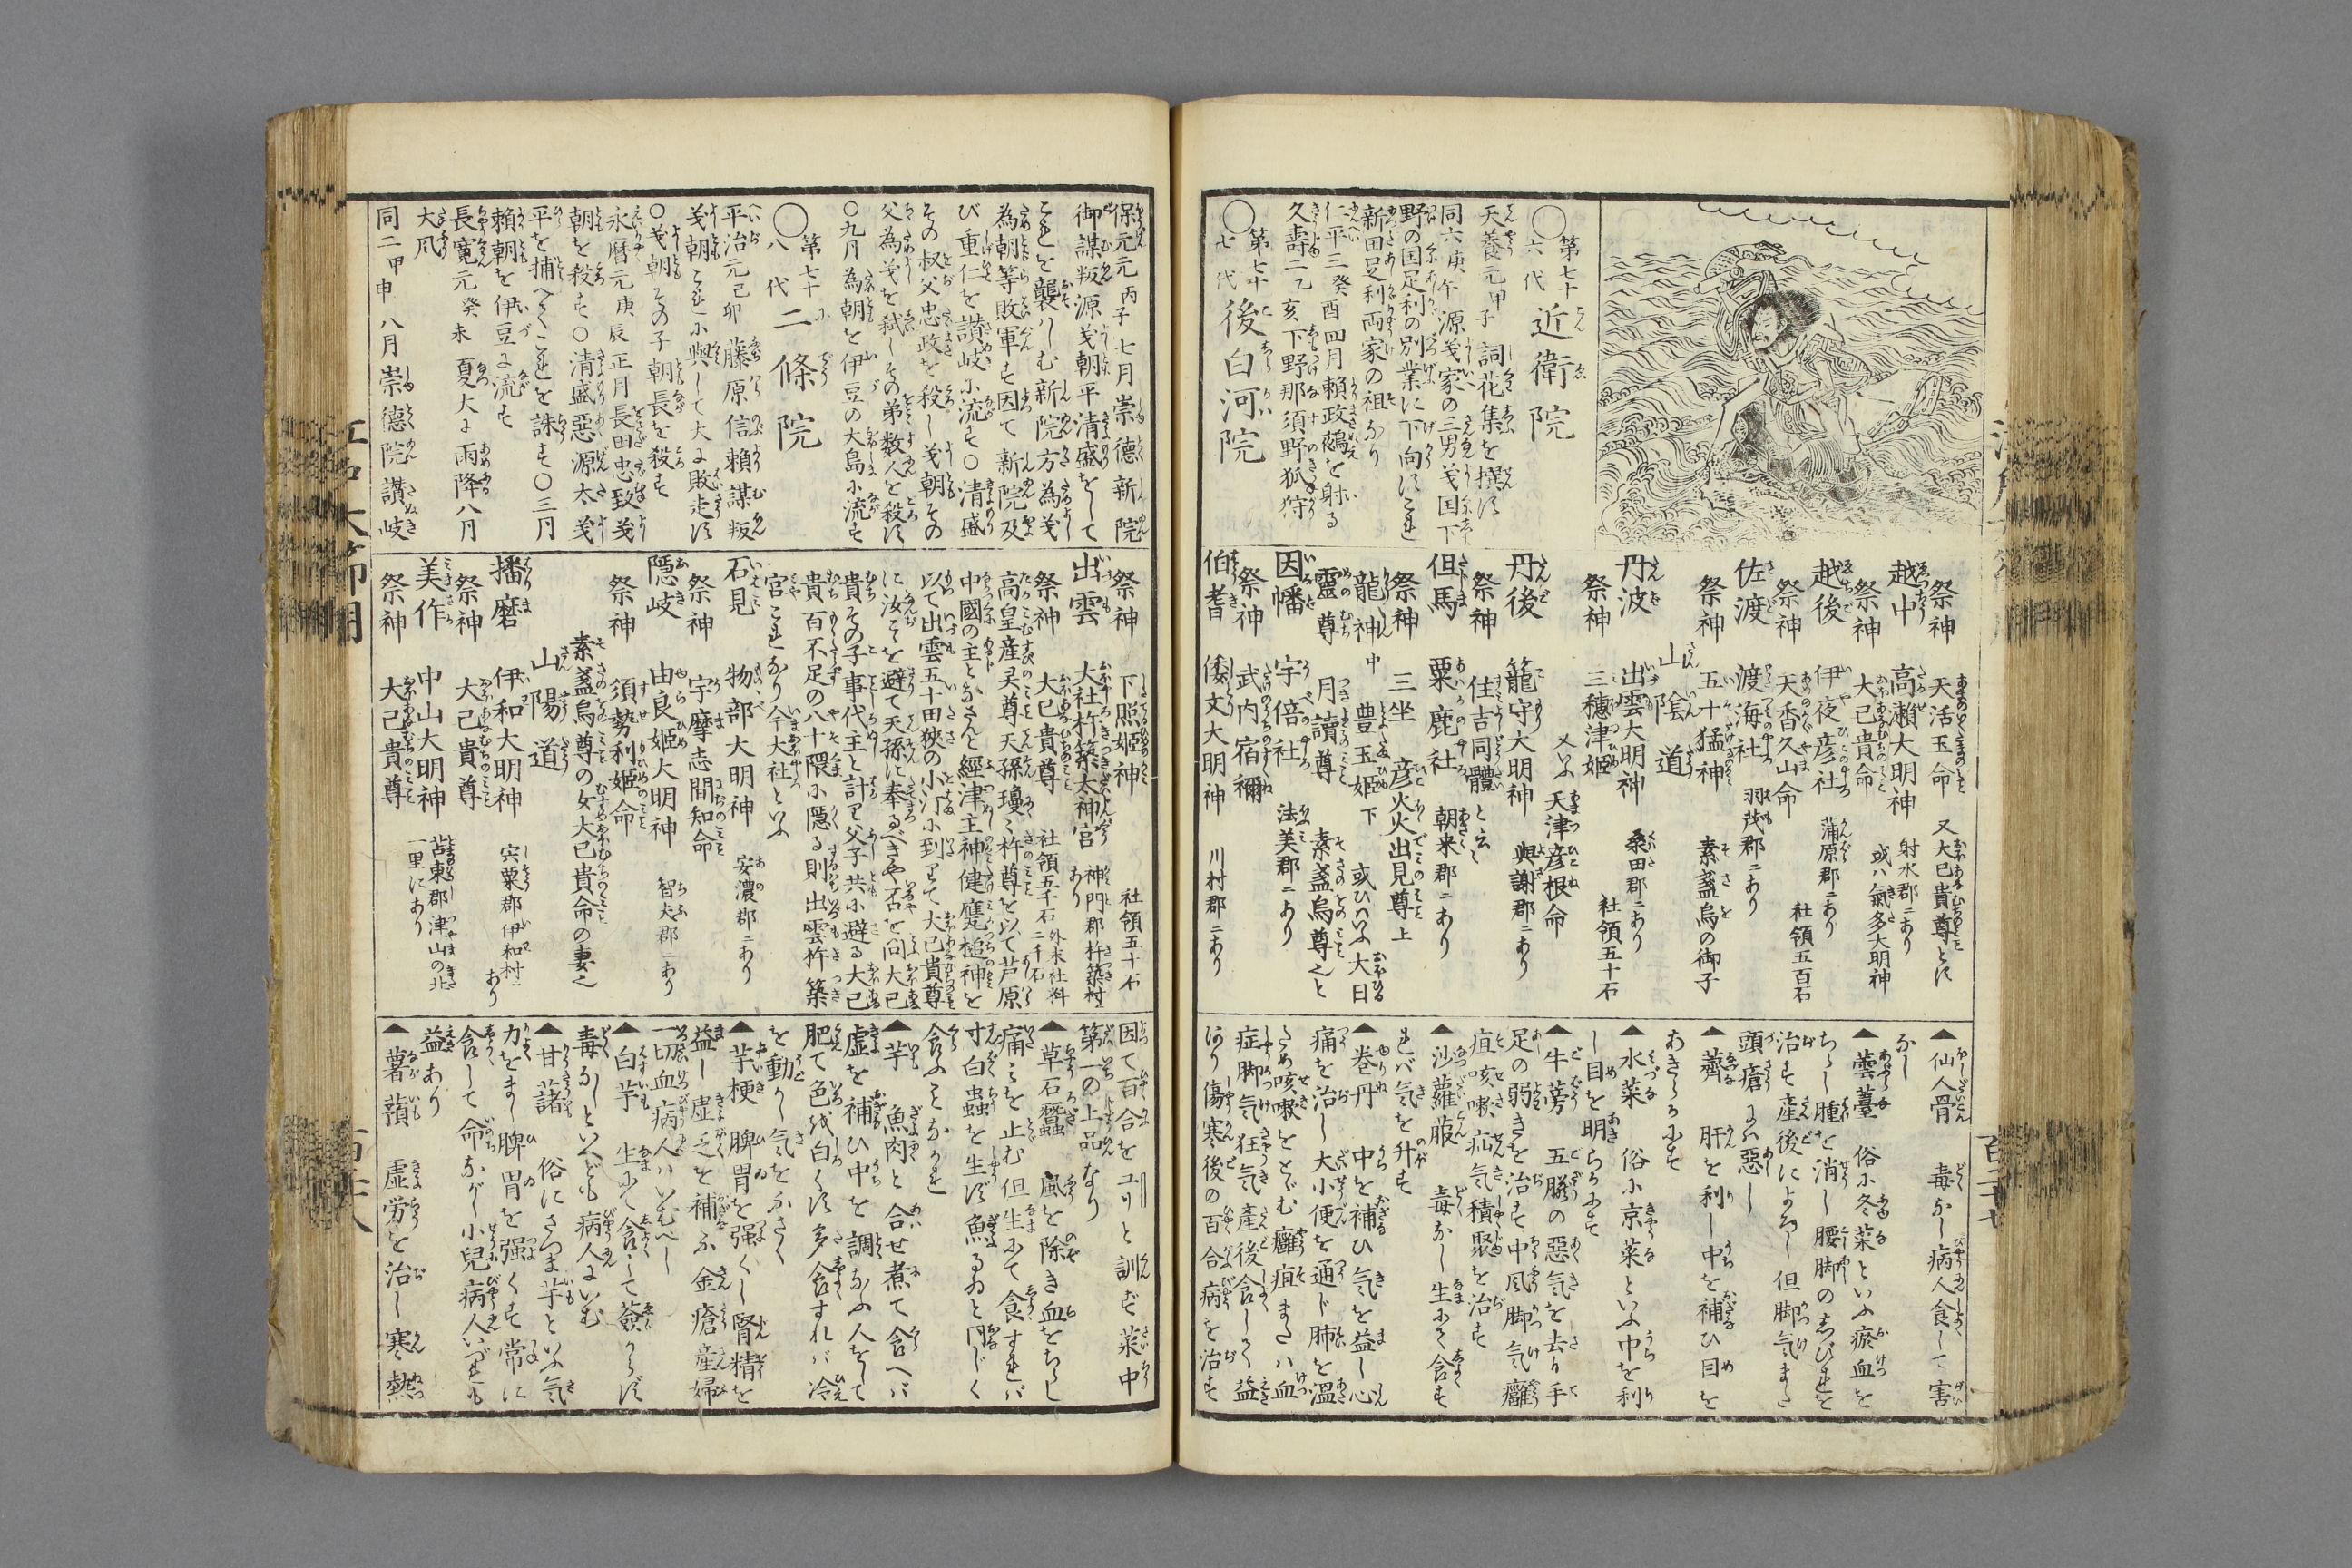 第七十六代 近衛院
天養元甲子 詞花集を撰ず
同六庚午 源義家の三男義国下
野の国足利の別業に下向すこれ
新田足利両家の祖なり
仁平三癸酉四月頼政鵺を射る
久壽二乙亥 下野那須野狐狩
第七十七代 後白河院
祭神 天活玉命 又大己貴尊とす
越中 高瀬大明神 射水郡ニあり
祭神 大己貴命 或ハ氣多大明神
越後 伊夜彦社 蒲原郡ニあり
祭神 天香久山命 社領五百石
佐渡 渡海社 羽茂郡ニあり
祭神 五十猛神 素盞烏の御子
山陰道
丹波 出雲大明神 桑田郡ニあり
祭神 三穗津姫 社領五十石
又ハ天津彦根命
丹後 籠守大明神 與謝郡ニあり
祭神 住吉同體と云々
但馬 粟鹿社 朝来郡ニあり
祭神 三坐 彦火火出見尊上
龍神中 豊玉姫下 或ひハ大日
靈尊 月讀尊 素盞烏尊之と
因幡 宇倍社 法美郡ニあり
祭神 武内宿禰
伯耆 倭文大明神 川村郡ニあり
▲仙人骨 毒なし病人食して害
なし
▲蕓薹 俗に冬菜といふ瘀血を
ちらし腫を消し腰脚のしびれを
治す産後によろし但脚気また
頭瘡にハ惡し
▲薺 肝を利し中を補ひ目を
あきらかにす
▲水菜 俗に京菜といふ中を利
し目を明らかにす
▲牛蒡 五臓の惡気を去り手
足の弱きを治す中風脚気癰
疽咳嗽疝気積聚を治す
▲沙蘿菔 毒なし生にて食す
れバ気を升す
▲巻丹 中を補ひ気を益し心
痛を治し大小便を通じ肺を温
ため咳嗽をとどむ癰疽またハ血
症脚気狂気産後食して益
あり傷寒後の百合病を治す
保元元丙子七月崇德新院
御謀叛源義朝平清盛をして
これを襲ハしむ新院方為義
為朝等敗軍す因て新院及
び重仁を讃岐に流す〇清盛
その叔父忠政を殺し義朝その
父為義を弑しその弟数人を殺す
〇九月為朝を伊豆の大島に流す
第七十八代 二條院
平治元己卯 藤原信頼謀叛
義朝これに與して大に敗走す
〇義朝その子朝長を殺す
永暦元庚辰正月長田忠致義
朝を殺す〇清盛惡源太義
平を捕へてこれを誅す〇三月
頼朝を伊豆に流す
長寛元癸未 夏大に雨降八月
大風
同二甲申 八月崇德院讃岐
祭神 下照姫神 社領五十石
出雲 大社杵築太神宮 神門郡杵築村あり
祭神 大己貴尊 社領五千石 外末社料二千石
高皇産灵尊天孫瓊々杵尊を以て芦原
中國の主となさんと經津主神健甕槌神を
以て出雲五十田狹の小汀に到りて大己貴尊
に汝こを避て天孫に奉るべきや否を问大己
貴その子事代主と計り父子共に避る大己
貴百不足の八十隈に隱る則出雲杵築
宮これなり今大社といふ
石見 物部大明神 安濃郡ニあり
祭神 宇摩志間知命
隱岐 由良姫大明神 智夫郡ニあり
祭神 須勢利姫命
素盞烏尊の女大己貴命の妻之
山陽道
播磨 伊和大明神 宍粟郡伊和村ニあり
祭神 大己貴尊
美作 中山大明神 苫東郡津山の北一里にあり
祭神 大己貴尊
因て百合をユリと訓ず菜中
第一の上品なり
▲草石蠶 風を除き血をちらし
痛を止む但生にて食すれバ
寸白蟲を生ず魚るゐと同じく
食ふことなかれ
▲芋 魚肉と合せ煮て食へバ
虚を補ひ中を調ふ人をして
肥て色を白くす多食すれバ冷
を動かし気をふさぐ
▲芋梗 脾胃を强くし腎精を
益し虚乏を補ふ金瘡產婦
一切血病人ハいむべし
▲白芋 生にて食して薟からず
毒なしといへども病人にいむ
▲甘藷 俗にさつま芋といふ気
力をまし脾胃を强くす常に
食して命ながし小兒病人いづれも
益あり
▲薯蕷 虚労を治し寒熱